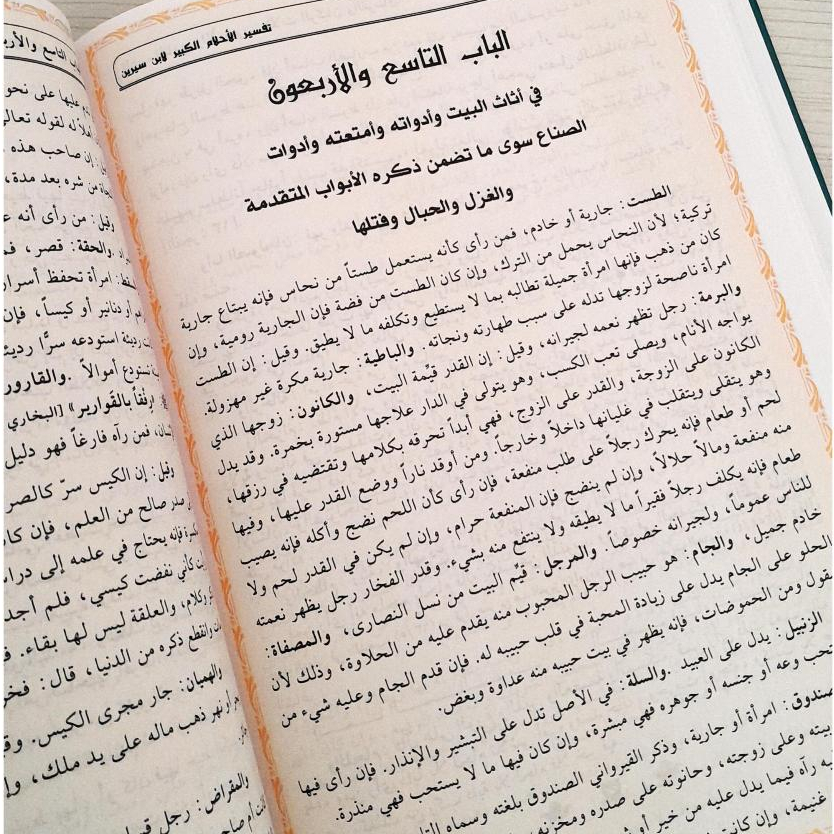 تفسير الأحلام الكبير لابن سيرين
الباب التاسع والأربعون
في أثاث البيت وأدواته وأمتعته وأدوات
الصناع سوى ما تضمن ذكره الأبواب المتقدمة
والغزل والحبال وفتلها
الطست: جارية أو خادم، فمن رأى كأنه يستعمل طستاً من نحاس فإنه يبتاع جارية
تركية؛ لأن النحاس يحمل من الترك، وإن كان الطست من فضة فإن الجارية رومية، وإن
كان من ذهب فإنها امرأة جميلة تطالبه بما لا يستطيع وتكلفه ما لا يطيق. وقيل: إن الطست
امرأة ناصحة لزوجها تدله على سبب طهارته ونجاته. والباطية: جارية مكرة غير مهزولة.
والبرمة: رجل تظهر نعمه لجيرانه، وقيل: إن القدر قيِّمة البيت، والكانون: زوجها الذي
يواجه الأنام، ويصلى تعب الكسب، وهو يتولى في الدار علاجها مستورة بخمرة. وقد يدل
الكانون على الزوجة، والقدر على الزوج، فهي أبداً تحرقه بكلامها وتقتضيه في رزقها،
وهو يتقلى ويتقلب في غليانها داخلاً وخارجاً. ومن أوقد ناراً ووضع القدر عليها، وفيها
لحم أو طعام فإنه يحرك رجلاً على طلب منفعة، فإن رأى كأن اللحم نضج وأكله فإنه يصيب
منه منفعة ومالاً حلالاً، وإن لم ينضج فإن المنفعة حرام، وإن لم يكن في القدر لحم ولا
طعام فإنه يكلف رجلاً فقيراً ما لا يطيقه ولا ينتفع منه بشيء. وقدر الفخار رجل يظهر نعمته
للناس عموماً، ولجيرانه خصوصاً. والمرجل: قيِّم البيت من نسل النصارى، والمصفاة:
خادم جميل، والجام: هو حبيب الرجل المحبوب منه يقدم عليه من الحلاوة، وذلك لأن
الحلو على الجام يدل على زيادة المحبة في قلب حبيبه له. فإن قدم الجام وعليه شيء من
قول ومن الحموضات، فإنه يظهر في بيت حبيبه منه عداوة وبغض.
الزنبيل: يدل على العبيد. والسلة: في الأصل تدل على التبشير والإنذار. فإن رأى فيها
نوعه أو جنسه أو جوهره فهي مبشرة، وإن كان فيها ما لا يستحب فهي منذرة.
صندوق: امرأة أو جارية، وذكر القيرواني الصندوق بلغته وسماه
بيته وعلى زوجته، وحانوته على صدره ومخزنه
رآه فيما يدل عليه من خير أو
غنيمة، وإن كانت
عليها على نحو
له لقوله تعالى
إن صاحب هذه
من شره بعد مدة،
وقيل: من رأى أنه
والحقة: قصر،
امرأة تحفظ أسرار
أو دنانير أو كيساً، فإن
رديئة استودعه سرًّا
تستودع أموالاً. والقارورة
رفقاً بالقوارير» [البخاري
فمن رآه فارغاً فهو دليل
وقيل: إن الكيس سرّ
صدر صالح من العلم، فإن
فإنه يحتاج في علمه إلى
كأني نفضت كيسي، فلم أجد
وكلام، والعلقة ليس لها بقاء.
وانقطع ذكره من الدنيا، قال:
والهميان: جار مجرى الكيس.
نهر ذهب ماله على يد ملك،
والمقراض: رجل